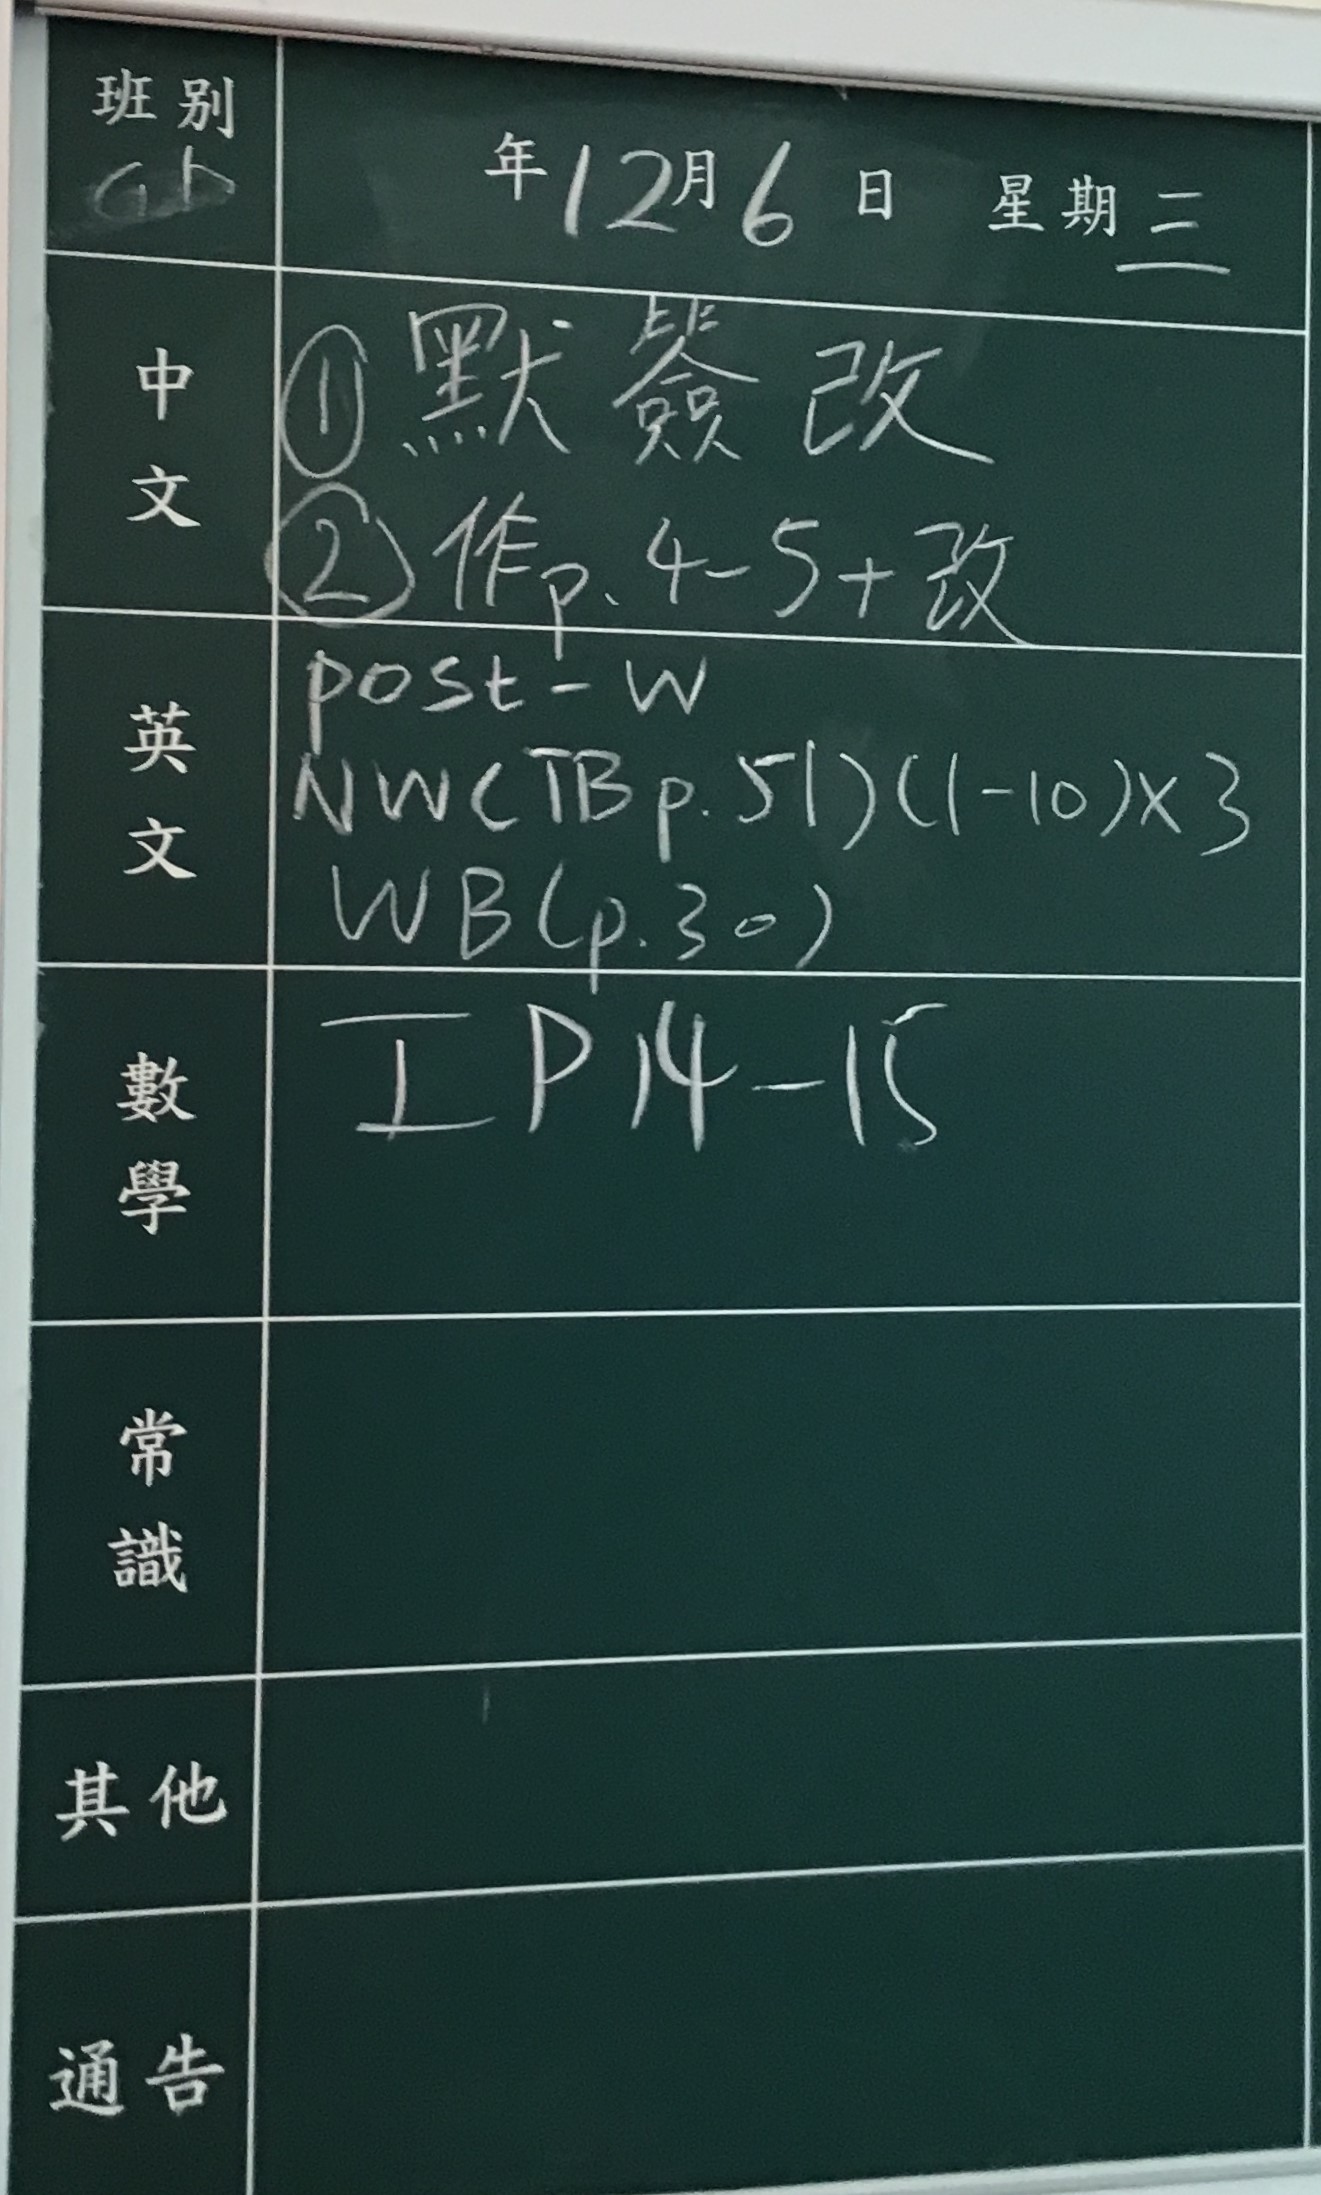 班別
年12月6日 星期三
中文
①默簽改
②作p.4-5+改
英文
post-W
NW(TB p.51)(1-10)×3
WB(p.30)
數學
工P14-15
常識
其他
通告